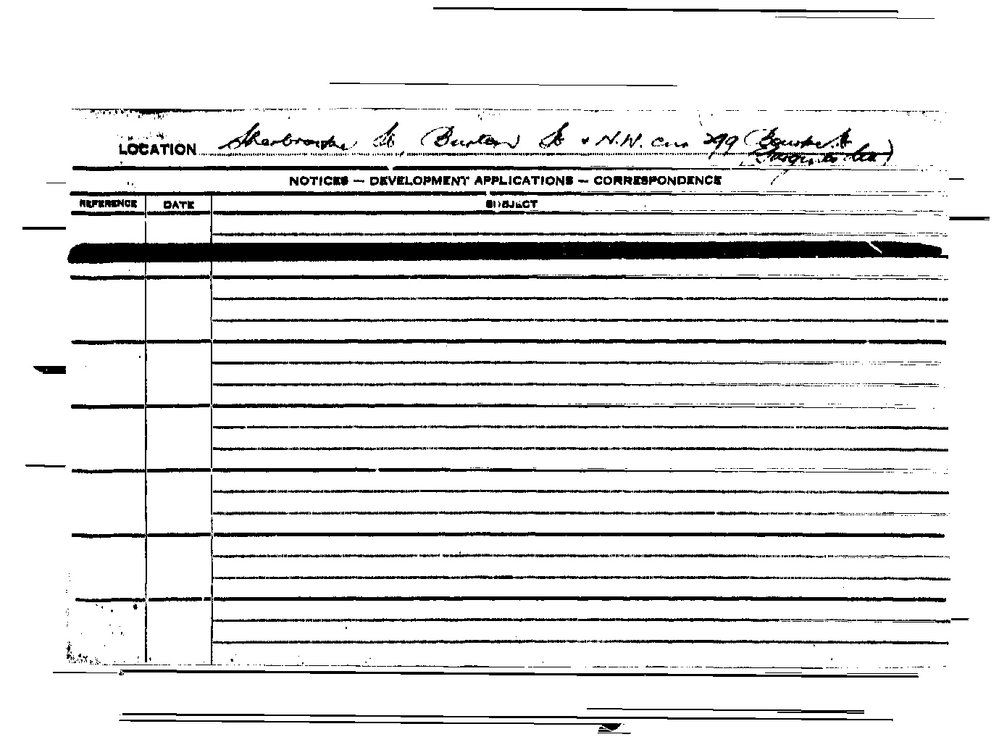 LOCATION Sherbrooke St, (Burton) St & N.W. cnr 299 (Bourke St
NOTICES — DEVELOPMENT APPLICATIONS — CORRESPONDENCE
REFERENCE DATE SUBJECT